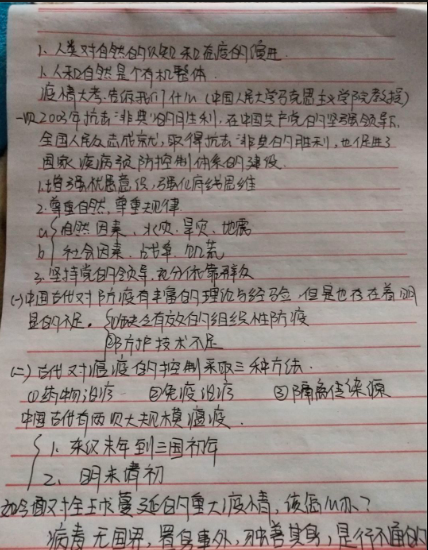 1、人类对自然的认知和态度的演进
1、人和自然是个有机整体.
疫情大考,告诉我们什么(中国人民大学马克思主义学院教授)
一、2003年抗击"非典"的胜利,在中国共产党的坚强领导下
全国人民众志成城,取得抗击"非典"的胜利,也促进了
国家疾病预防控制体系的建设.
1.增强忧患意识,强化底线思维
2.尊重自然、尊重规律
a 自然因素、水灾、旱灾、地震
b 社会因素、战争、饥荒
3.坚持党的领导,充分依靠群众
(一)中国古代对防疫有丰富的理论与经验,但是也存在着明
显的不足. ①缺乏有效的组织性防疫
②防护技术不足
(二)古代对瘟疫的控制采取三种方法.
①药物治疗 ②免疫治疗 ③隔离传染源
中国古代有两次大规模瘟疫.
1、东汉末年到三国初年
2、明末清初
如今面对全球蔓延的重大疫情,该怎么办?
病毒无国界,置身事外,独善其身,是行不通的